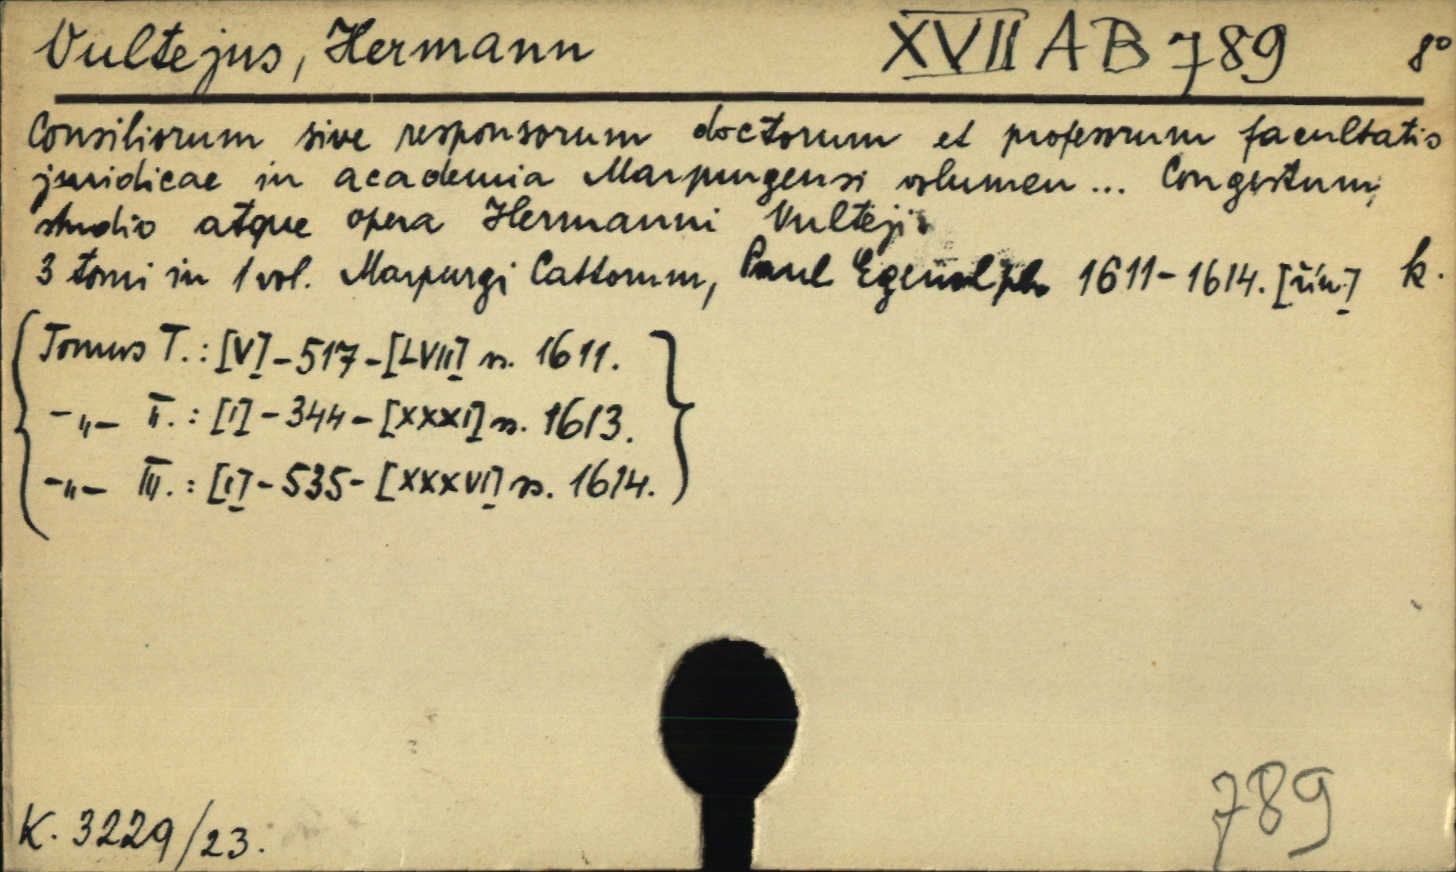 Vultejus, Hermann XVII AB 789 8°
Consiliorum sive responsorum doctorum et professorum facultatis
juridicae in academia Marpurgensi volumen... Congestum,
studio atque opera Hermanni Vulteji
3 tomi in 1 vol. Marpurgi Cattorum, Paul Egenolph 1611-1614. [řím.] k.
Tomus I.: [V]-517-[LVII] s. 1611.
-„- II.: [I]-344-[XXXI] s. 1613.
-„- III.: [I]-535-[XXXVI] s. 1614.
K. 3229/23.
789